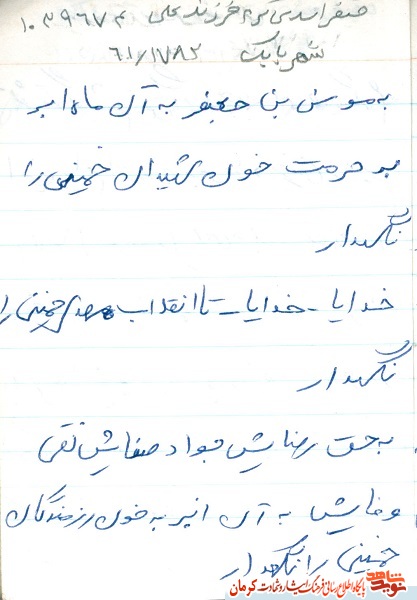 فرزند علی ۱۰۳۹۶۷۴
شهر بابک ۶۱/۱۷۸۲
به موسی بن جعفر به آن ماه
به حرمت خون شهیدان خمینی را
نگهدار
خدایا - خدایا - تا انقلاب مهدی خمینی را
نگهدار
به حق رضایش جواد صفایش نقی
وفایش به آن به خون رزمندگان
خمینی را نگهدار
نوید شاهد
پایگاه اطلاع رسانی فرهنگ ایثار و شهادت کرمان